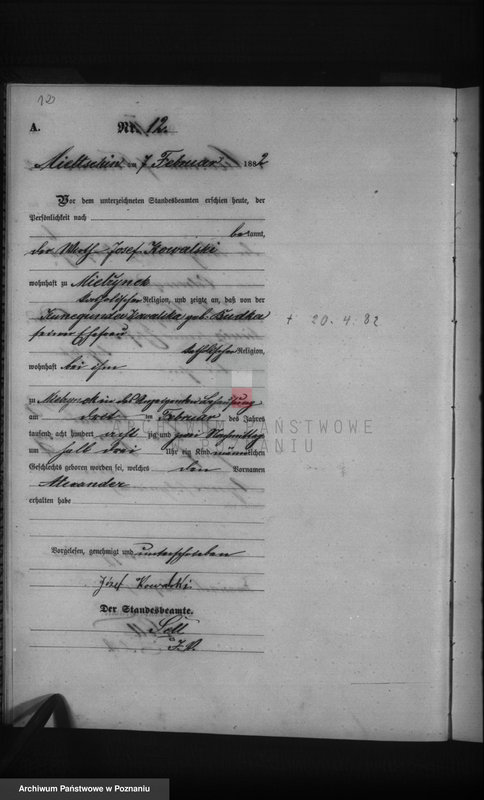 120
A. Nr. 12.
Mieltschin am 7 Februar 1882
Vor dem unterzeichneten Standesbeamten erschien heute, der
Persönlichkeit nach
bekannt,
der Wirth Josef Kowalski
wohnhaft zu Mielzynek
katholischer Religion, und zeigte an, daß von der
Kunegunda Kowalska geb. Budka
seiner Ehefrau
katholischer Religion,
wohnhaft bei ihm
+ 20.4.82
zu Mielzynek in des Behausung
am drei im Februar des Jahres
tausend acht hundert acht zig und zwei Nachmittag
um halb drei Uhr ein Kind männlichen
Geschlechts geboren worden sei, welches den Vornamen
Alexander
erhalten habe
ARCHIWUM PAŃSTWOWE
W POZNANIU
Vorgelesen, genehmigt und unterschrieben
Józef Kowalski
Der Standesbeamte.
Sell
J.V.
Archiwum Państwowe w Poznaniu